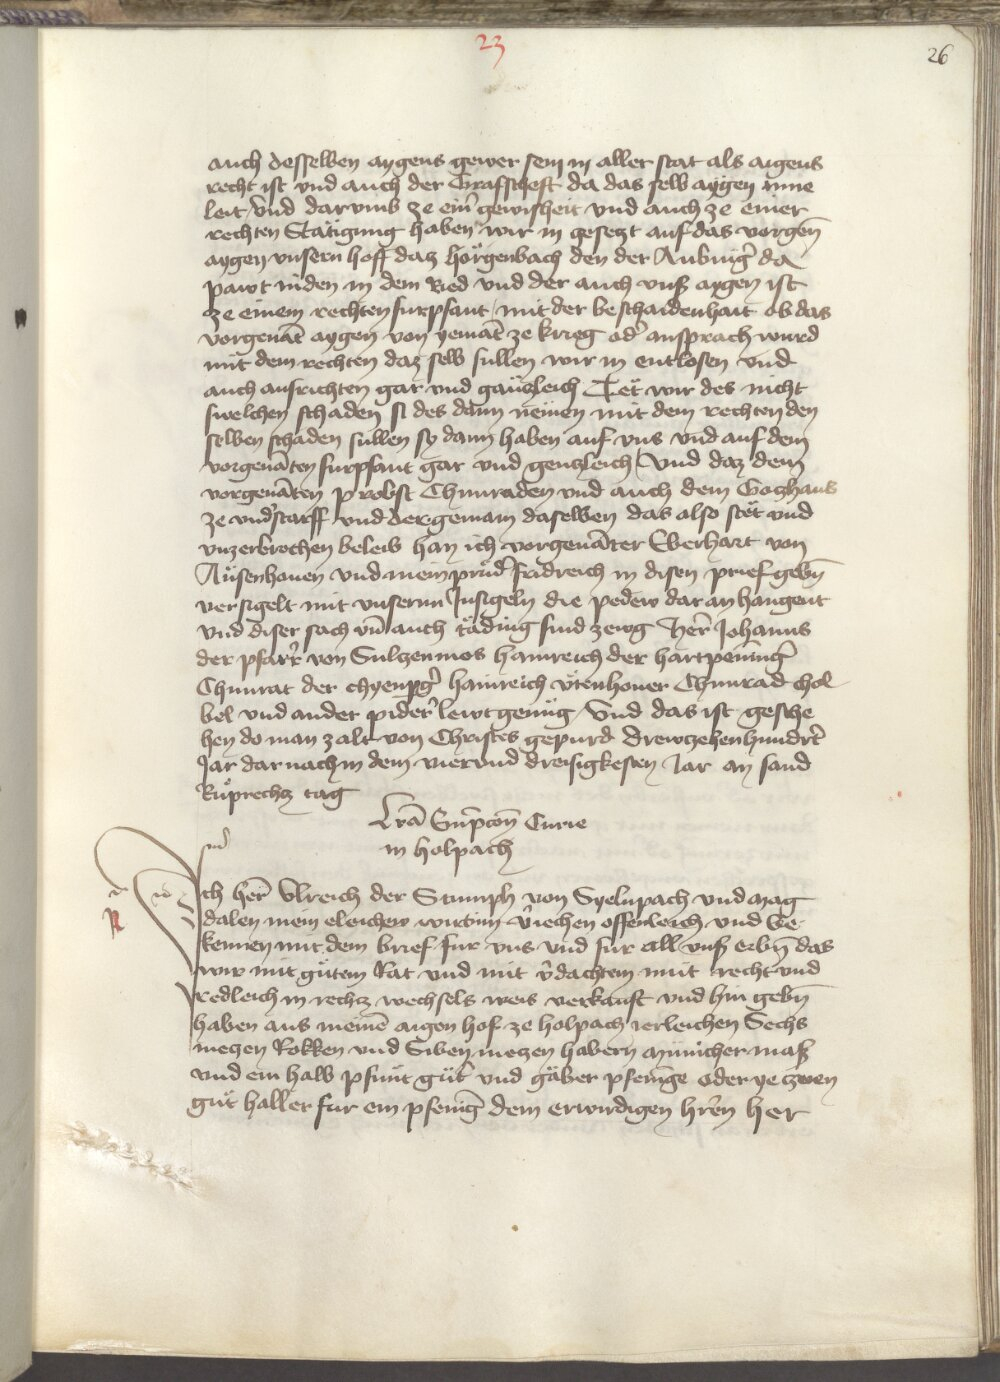 23
26
auch desselben aygens gewer sein in aller stat als aigens
recht ist vnd auch der Grafscheft da das selb aygen inne
leit / vnd darvmb ze ein̄ gewisheit vnd auch ze einer
rechten Statigung haben wir in gesetzt auf das vorgen̄
aygen vnsern hoff daz Hörgenbach den der Aubinḡ da
pawt niden in dem Ried vnd der auch vnser aygen ist
ze einem rechten furpfant / mit der beschaidenhait ob das
vorgenāt aygen von yemāt ze krieg od̄ ansprach wurd
mit dem rechten daz selb sullen wir in entlosen vnd
auch ausrichten gar vnd gäntzleich Tet wir des nicht
swelchen schaden si des dann nemen mit dem rechten den
selben schaden sullen sy dann haben auf vns vnd auf dem
vorgenāten furpfant gar vnd gentzleich / Vnd daz dem
vorgenāten probst Chunraden vnd auch dem Goczhaus
ze vnd̄starff vnd der gemain daselben das also stet vnd
vnzerbrochen beleib han ich vorgenāter Eberhart von
Aüsenhouen vnd mein prüd̄ fridreich in disen prief geb̄n
versigelt mit vnserm Insigeln die pedew dar an hangent
vnd diser sach vn̄ auch täding sind zewg Her̄ Johanns
der pfarr̄ von Sulczenmos Hainreich der hartpeninḡ
Chunrat der Hainreich vtenhouer Chunrad chol
bel vnd ander pider lewt genüg / vnd das ist gesche
hen do man zalt von Christes gepurd drewzehenhundrt̄
Jar dar nach in dem vier vnd dreisigkesten Jar an sand
Ruprechtz tag
Lrā Curie
in holpach
Ich her̄ Vlreich der Stumph von vnd Mag
dalen mein eleichew wirtinn v̄iechen offenleich vnd be
kennen mit dem brief fur vns vnd fur all vnser erb̄n das
wir mit gütem Rat vnd mit v̄dachtem müt recht vnd
redleich in rechtz wechsels weis verkauft vnd hin geb̄n
haben aus meinē aigen hof ze holpach ierleichen Sechs
metzen Rokken vnd Siben metzen habern müncher mass
vnd ein halb pfunt güt̄ vnd gäber pfeninḡe oder ye zwen
güt haller fur ein pfeninḡ dem erwirdigen hr̄en her